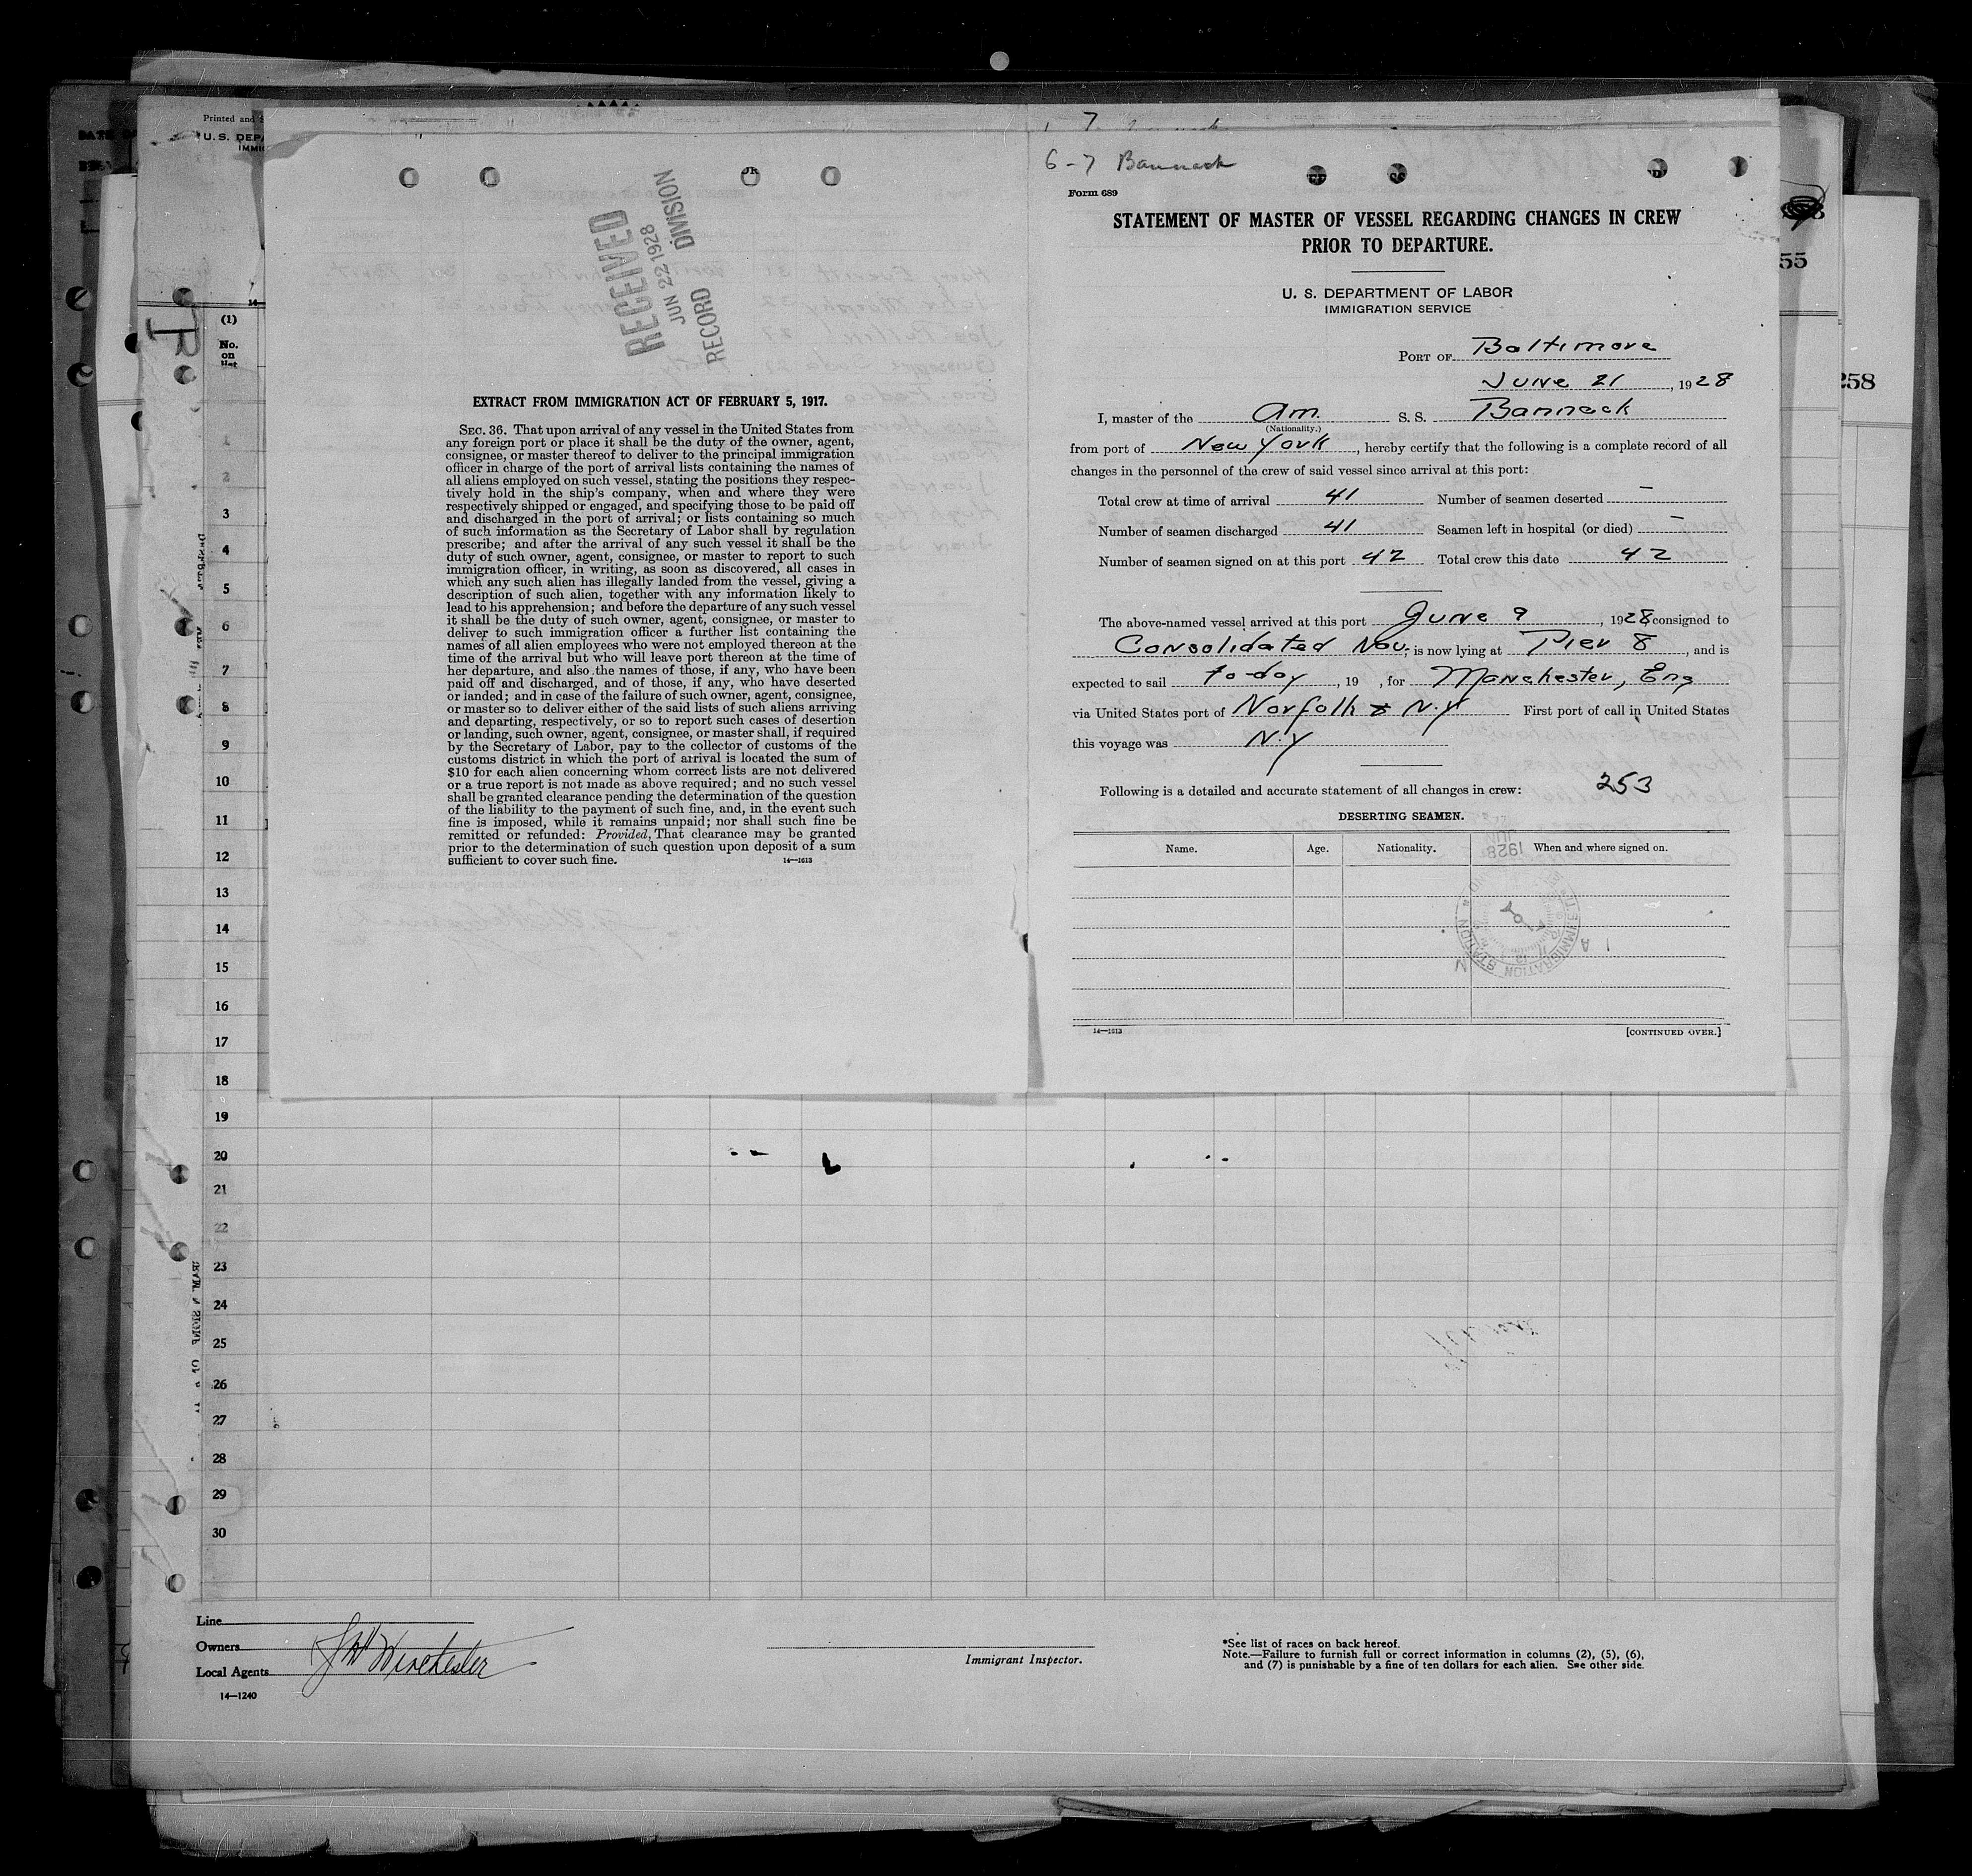 Printed and
U. S. DEPA
IMMIG
(1)
No.
on
list
1
2
3
4
5
6
7
8
9
10
11
12
13
14
15
16
17
18
19
20
21
22
23
24
25
26
27
28
29
30
RECEIVED
JUN 22 1928
RECORD DIVISION
EXTRACT FROM IMMIGRATION ACT OF FEBRUARY 5, 1917.
SEC. 36. That upon arrival of any vessel in the United States from
any foreign port or place it shall be the duty of the owner, agent,
consignee, or master thereof to deliver to the principal immigration
officer in charge of the port of arrival lists containing the names of
all aliens employed on such vessel, stating the positions they respec-
tively hold in the ship's company, when and where they were
respectively shipped or engaged, and specifying those to be paid off
and discharged in the port of arrival; or lists containing so much
of such information as the Secretary of Labor shall by regulation
prescribe; and after the arrival of any such vessel it shall be the
duty of such owner, agent, consignee, or master to report to such
immigration officer, in writing, as soon as discovered, all cases in
which any such alien has illegally landed from the vessel, giving a
description of such alien, together with any information likely to
lead to his apprehension; and before the departure of any such vessel
it shall be the duty of such owner, agent, consignee, or master to
deliver to such immigration officer a further list containing the
names of all alien employees who were not employed thereon at the
time of the arrival but who will leave port thereon at the time of
her departure, and also the names of those, if any, who have been
paid off and discharged, and of those, if any, who have deserted
or landed; and in case of the failure of such owner, agent, consignee,
or master so to deliver either of the said lists of such aliens arriving
and departing, respectively, or so to report such cases of desertion
or landing, such owner, agent, consignee, or master shall, if required
by the Secretary of Labor, pay to the collector of customs of the
customs district in which the port of arrival is located the sum of
$10 for each alien concerning whom correct lists are not delivered
or a true report is not made as above required; and no such vessel
shall be granted clearance pending the determination of the question
of the liability to the payment of such fine, and, in the event such
fine is imposed, while it remains unpaid; nor shall such fine be
remitted or refunded: Provided, That clearance may be granted
prior to the determination of such question upon deposit of a sum
sufficient to cover such fine. 14—1613
6-7 Bannack
Form 689
STATEMENT OF MASTER OF VESSEL REGARDING CHANGES IN CREW
PRIOR TO DEPARTURE.
U. S. DEPARTMENT OF LABOR
IMMIGRATION SERVICE
PORT OF Baltimore
June 21, 1928
I, master of the Am. S. S. Bannack
(Nationality.)
from port of New York, hereby certify that the following is a complete record of all
changes in the personnel of the crew of said vessel since arrival at this port:
Total crew at time of arrival 41 Number of seamen deserted -
Number of seamen discharged 41 Seamen left in hospital (or died) -
Number of seamen signed on at this port 42 Total crew this date 42
The above-named vessel arrived at this port June 9, 1928 consigned to
Consolidated Nav., is now lying at Pier 8, and is
expected to sail to-day, 19 , for Manchester, Eng
via United States port of Norfolk & N.Y First port of call in United States
this voyage was N.Y
Following is a detailed and accurate statement of all changes in crew: 253
DESERTING SEAMEN.
Name. Age. Nationality. When and where signed on.
14—1613 [CONTINUED OVER.]
55
258
Line
Owners
Local Agents JH Winchester
14—1240
Immigrant Inspector.
*See list of races on back hereof.
Note.—Failure to furnish full or correct information in columns (2), (5), (6),
and (7) is punishable by a fine of ten dollars for each alien. See other side.